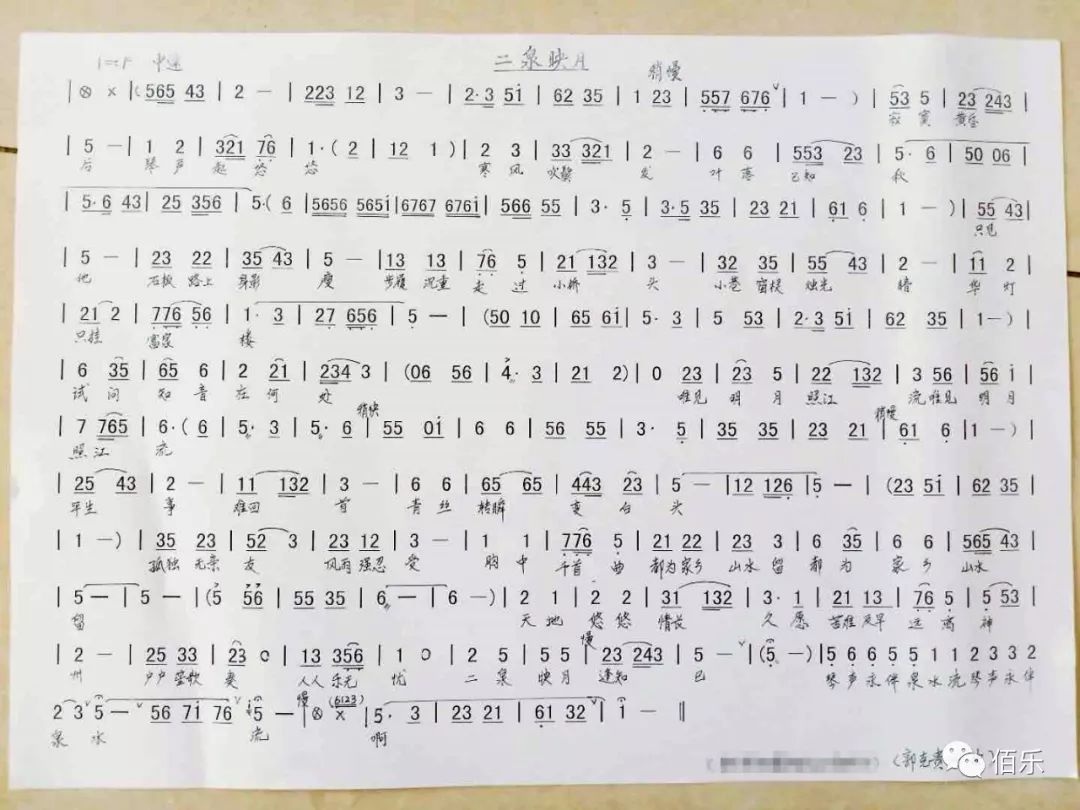 1=F 中速 二泉映月 稍慢
| ⊗ x | ( 565 43 | 2 — | 223 12 | 3 — | 2·3 5i | 62 35 | 1 23 | 557 676 ∨ | 1 — ) | 53 5 | 23 243 |
寂寞 黄昏
| 5 — | 1 2 | 321 76 | 1·( 2 | 12 1 ) | 2 3 | 33 321 | 2 — | 6 6 | 553 23 | 5· 6 | 50 06 |
后 琴声 起悠悠 寒风 吹鬓 发 叶落 已知 秋
| 5·6 43 | 25 356 | 5·( 6 | 5656 565i | 6767 676i | 566 55 | 3· 5 | 3·5 35 | 23 21 | 61 6 | 1 — ) | 55 43 |
只见
| 5 — | 23 22 | 35 43 | 5 — | 13 13 | 76 5 | 21 132 | 3 — | 32 35 | 55 43 | 2 — | 11 2
他 石板 路上 身影 瘦 步履 沉重 走过 小桥 头 小巷 窗棂 烛光 暗 华灯
| 21 2 | 776 56 | 1· 3 | 27 656 | 5 — | (50 10 | 65 61 | 5· 3 | 5 53 | 2·3 5i | 62 35 | 1 — ) |
只挂 富家 楼
| 6 35 | 65 6 | 2 21 | 234 3 | (06 56 | 4· 3 | 21 2) | 0 23 | 23 5 | 22 132 | 3 56 | 56 i |
试问 知音 在何处 唯见 明月 照江 流唯见 明月
稍快 稍慢
| 7 765 | 6·( 6 | 5· 3 | 5· 6 | 55 0i | 6 6 | 56 55 | 3· 5 | 35 35 | 23 21 | 61 6 | 1 — ) |
照江 流
| 25 43 | 2 — | 11 132 | 3 — | 6 6 | 65 65 | 443 23 | 5 — | 12 126 | 5 — | (23 5i | 62 35 |
平生 事 难回 首 青丝 转瞬 变白 头
| 1 — ) | 35 23 | 52 3 | 23 12 | 3 — | 1 1 | 776 5 | 21 22 | 23 3 | 6 35 | 6 6 | 565 43 |
孤独 无亲 友 风雨 强忍 受 胸中 千首 曲 都为 家乡 山水 留 都为 家乡 山水
| 5 — | 5 — | (5 56 | 55 35 | 6 — | 6 — ) | 2 1 | 2 2 | 31 132 | 3· 1 | 21 13 | 76 5 | 5 53 |
留 天地 悠悠 情长 久愿 苦难 及早 远离 神
慢
| 2 — | 25 33 | 23 0 | 13 356 | 1 0 | 2 5 | 5 5 | 23 243 | 5 — ∨ | (5 — ) | 5 6 6 5 1 1 2 3 3 2
州 户户 笙歌 奏 人人 乐无 忧 二泉 映月 逢知 己 琴声永伴泉水流琴声永伴
慢 (6123)
2 3 ∨ 5 — ∨ 56 7i 76 ∨ 5 — | ⊗ x | 5· 3 | 23 21 | 61 32 ∨ | i — ‖
泉水 流 啊
佰乐